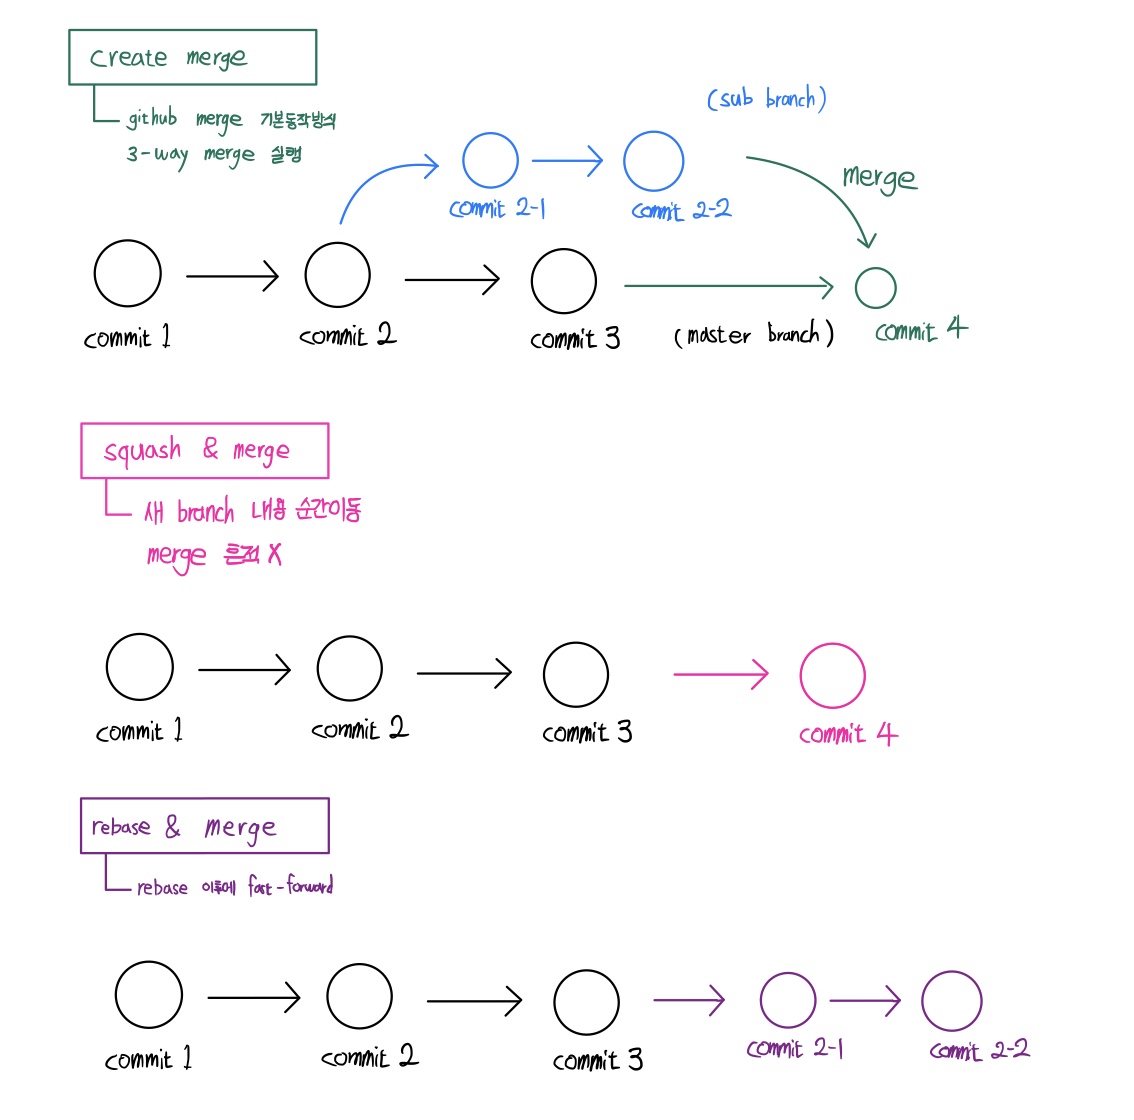 create merge
github merge 기본동작방식
3-way merge 실행
(sub branch)
merge
commit 2-1
commit 2-2
commit 1
commit 2
commit 3
(master branch)
commit 4
squash & merge
새 branch 내용 순간이동
merge 흔적 X
commit 1
commit 2
commit 3
commit 4
rebase & merge
rebase 이후에 fast-forward
commit 1
commit 2
commit 3
commit 2-1
commit 2-2